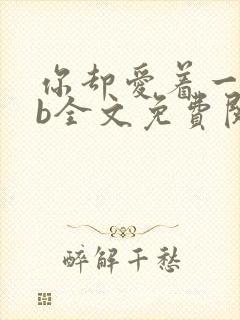 你却愛着一
b全文免費閱
醉解千愁